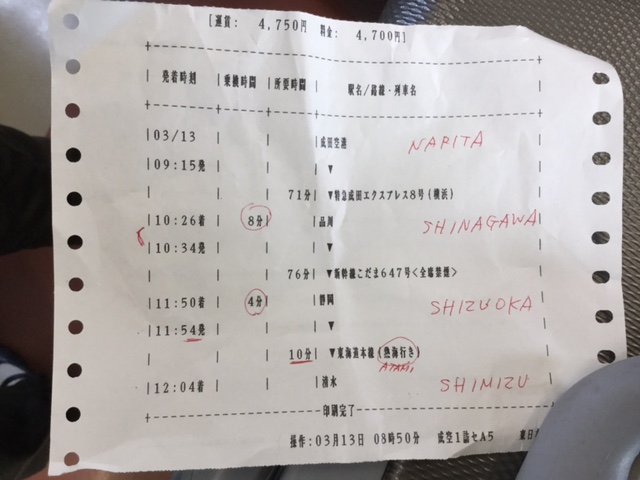 [運賃: 4,750円 料金: 4,700円]
発着時刻 乗換時間 所要時間 駅名/路線・列車名
03/13 成田空港 NARITA
09:15発 ▼
71分 ▼特急成田エクスプレス8号(横浜)
10:26着 8分 品川 SHINAGAWA
10:34発 ▼
76分 ▼新幹線こだま647号<全席禁煙>
11:50着 4分 静岡 SHIZUOKA
11:54発 ▼
10分 ▼東海道本線(熱海行き)
ATAMI
12:04着 清水 SHIMIZU
印刷完了
操作:03月13日 08時50分 成空1 セA5 東日